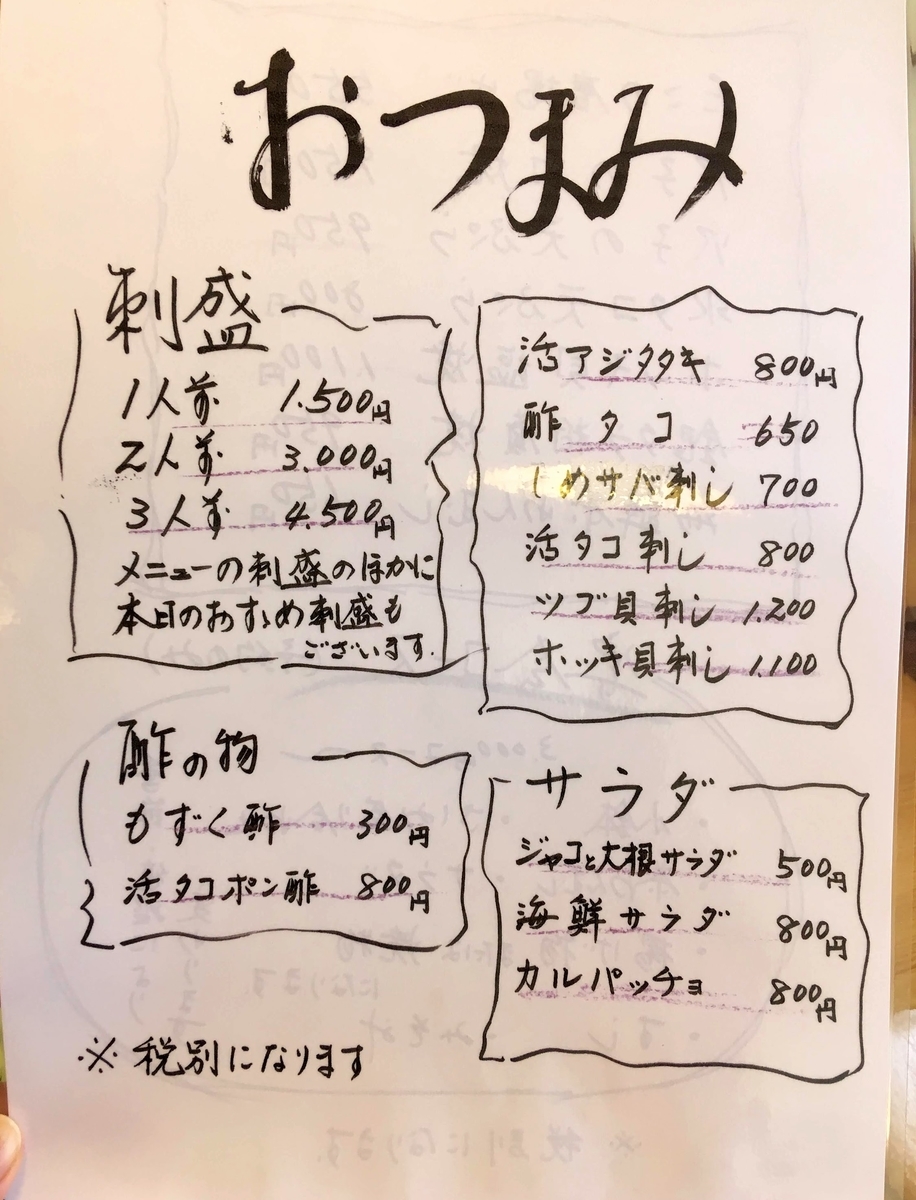 おつまみ
刺盛
1人前 1.500円
2人前 3.000円
3人前 4.500円
メニューの刺盛のほかに
本日のおすすめ刺盛も
ございます.
活アジタタキ 800円
酢タコ 650
しめサバ刺し 700
活タコ刺し 800
ツブ貝刺し 1.200
ホッキ貝刺し 1.100
酢の物
もずく酢 300円
活タコポン酢 800円
サラダ
ジャコと大根サラダ 500円
海鮮サラダ 800円
カルパッチョ 800円
※税別になります